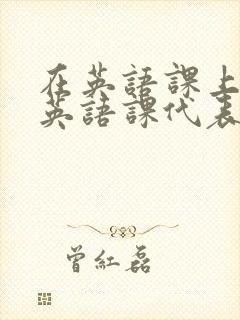 在英語課上
英語課代表
曾紅磊